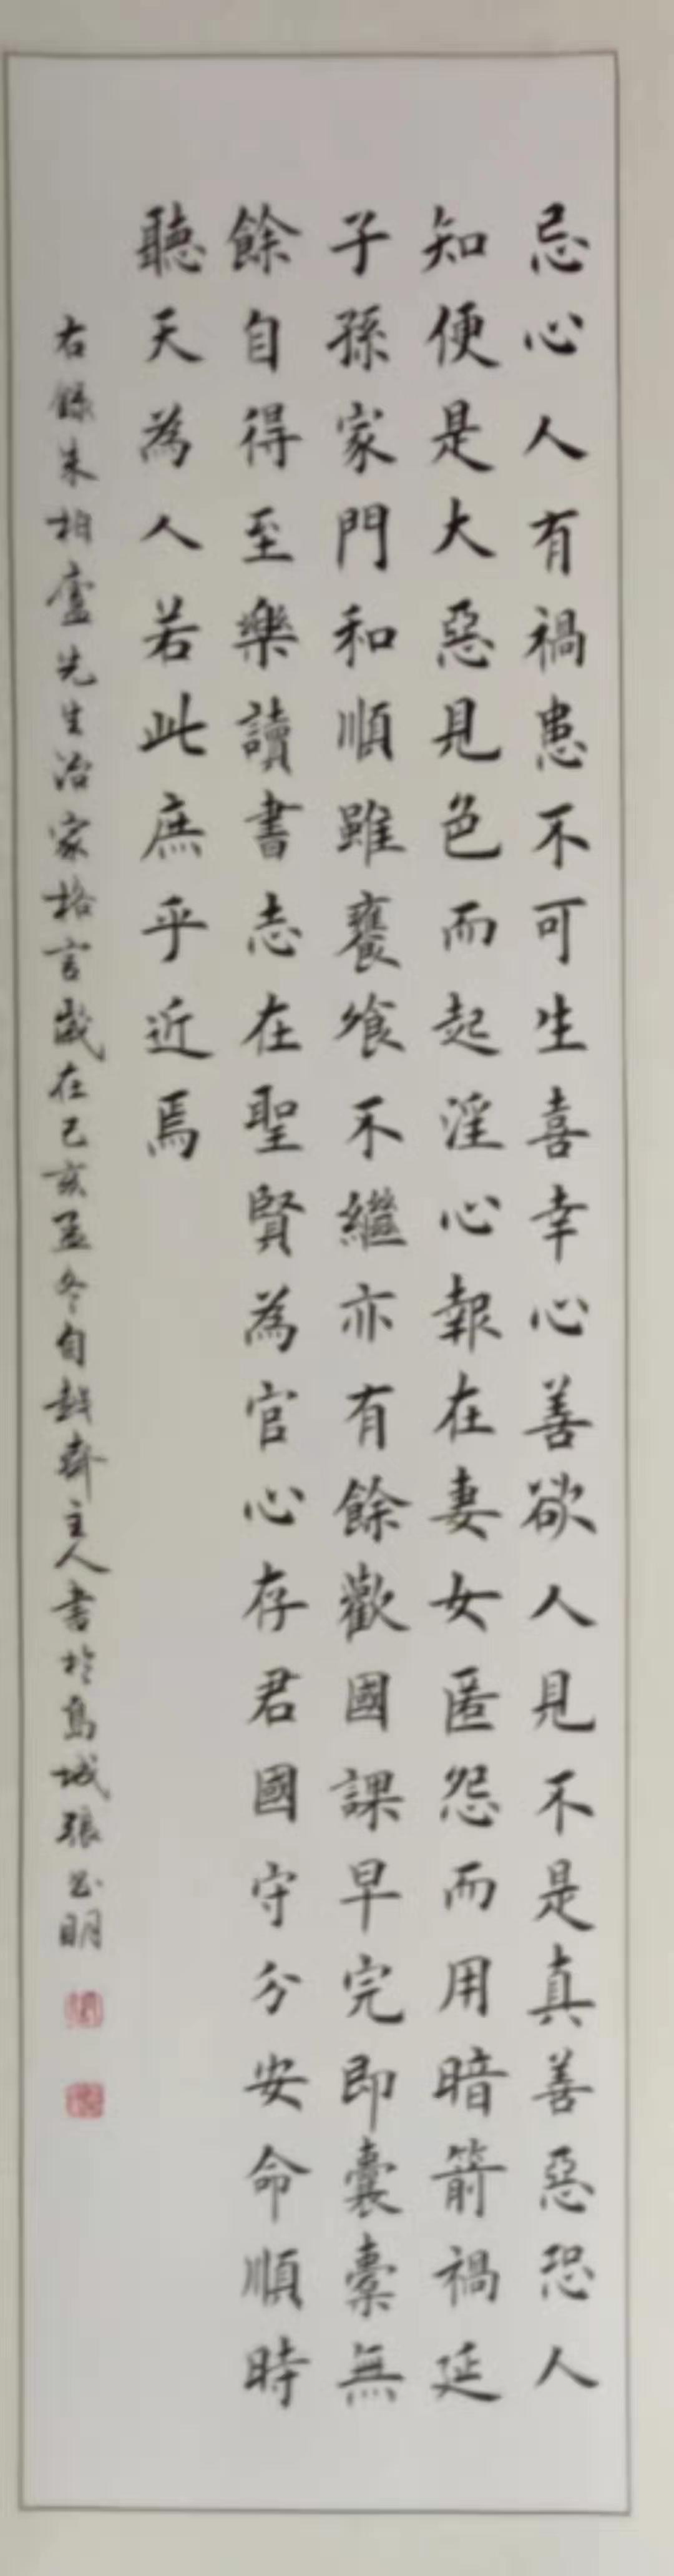 忌心人有禍患不可生喜幸心善欲人見不是真善惡恐人
知便是大惡見色而起淫心報在妻女匿怨而用暗箭禍延
子孫家門和順雖饔飧不繼亦有餘歡國課早完即囊橐無
餘自得至樂讀書志在聖賢為官心存君國守分安命順時
聽天為人若此庶乎近焉
右錄朱柏廬先生治家格言歲在己亥孟冬自越齋主人書於島城張明